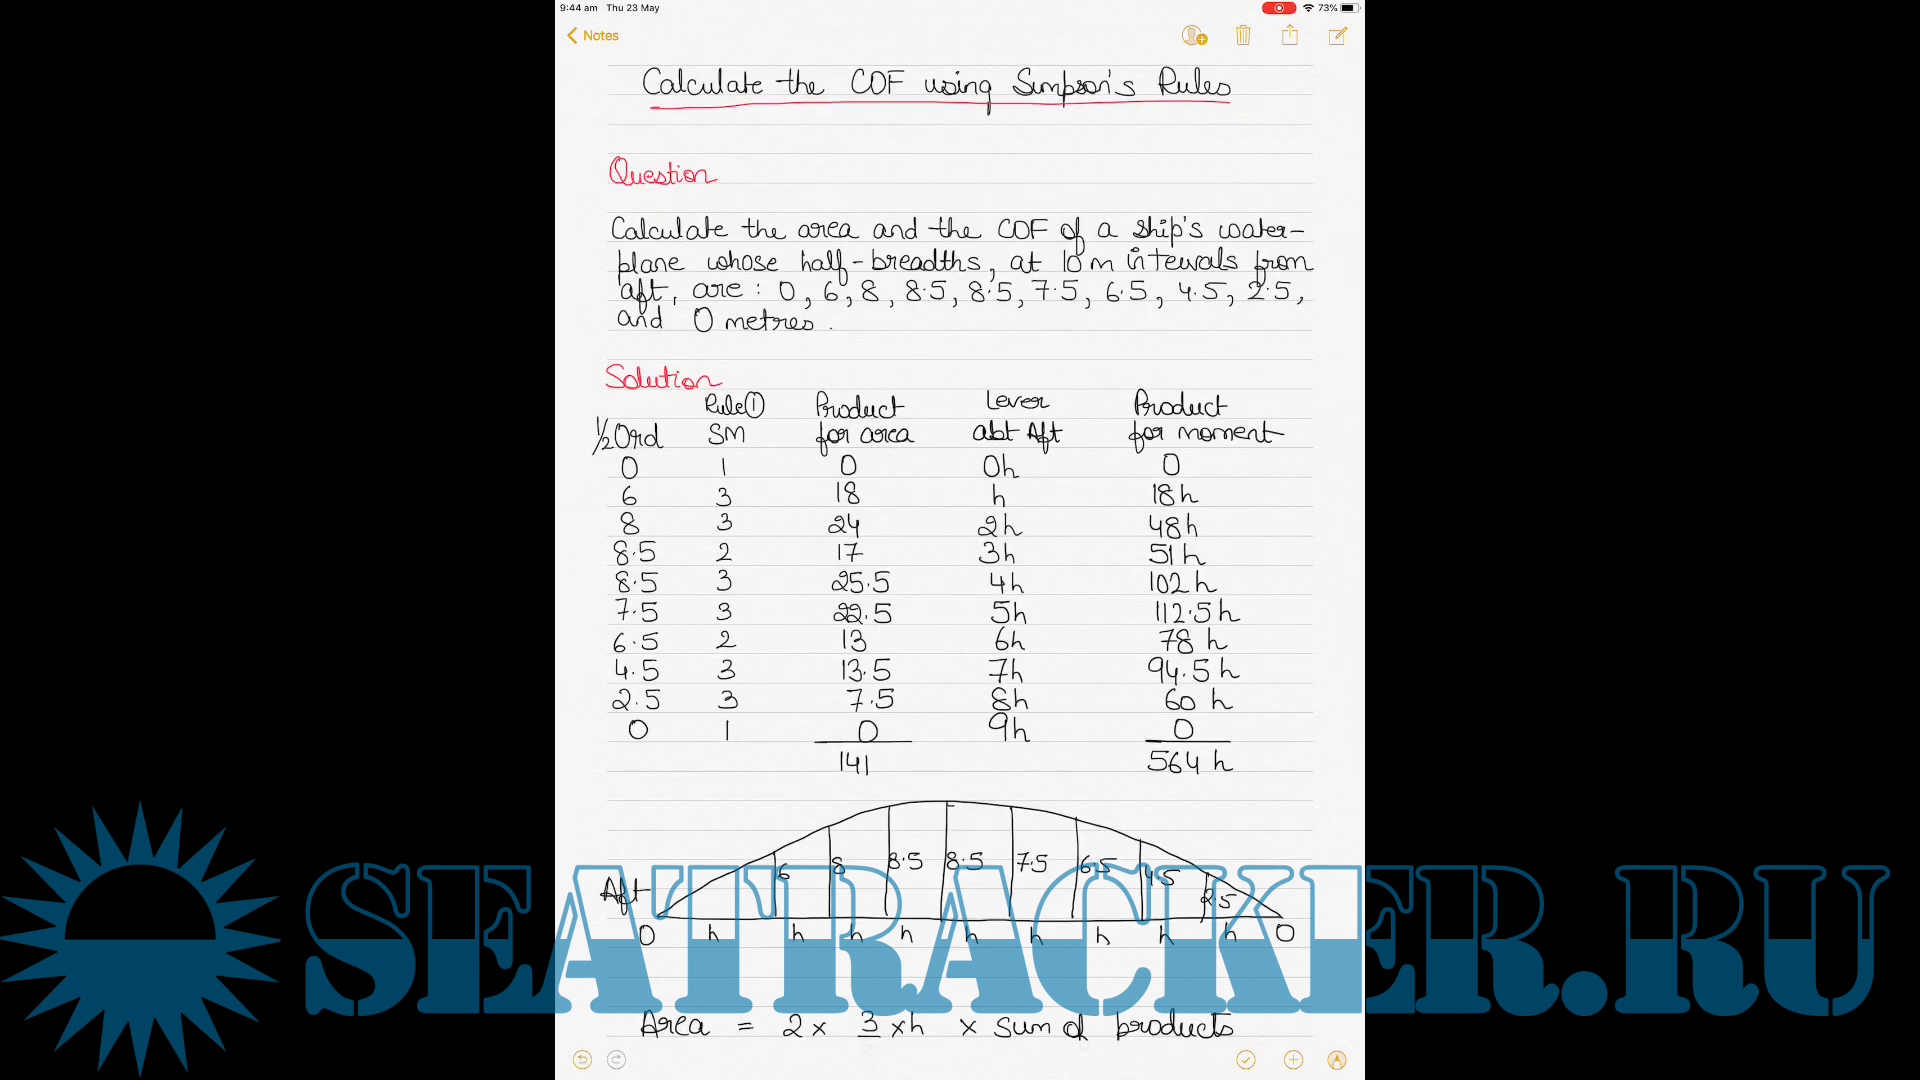 9:44 am Thu 23 May
73%
Notes
Calculate the COF using Simpson's Rules
Question
Calculate the area and the COF of a ship's water-
plane whose half-breadths, at 10 m intervals from
aft, are : 0, 6, 8, 8.5, 8.5, 7.5, 6.5, 4.5, 2.5,
and 0 metres.
Solution
Rule① Product Lever Product
1/2 Ord SM for area abt Aft for moment
0 1 0 0h 0
6 3 18 h 18h
8 3 24 2h 48h
8.5 2 17 3h 51h
8.5 3 25.5 4h 102h
7.5 3 22.5 5h 112.5h
6.5 2 13 6h 78h
4.5 3 13.5 7h 94.5h
2.5 3 7.5 8h 60h
0 1 0 9h 0
141 564h
6 8 8.5 8.5 7.5 6.5 4.5 2.5
Aft
0 h h h h h h h h h 0
SEATRACKER.RU
Area = 2 x 3 x h x sum of products